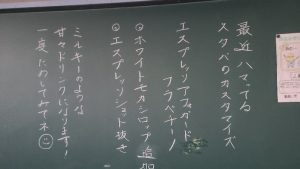 最近ハマってる
スタバのカスタマイズ
エスプレッソアフォガード
フラペチーノ
☺ホワイトモカシロップ追加
☺エスプレッソショット抜き
ミルキーのような
甘々ドリンクになります!
一度ためしてみてネ☺